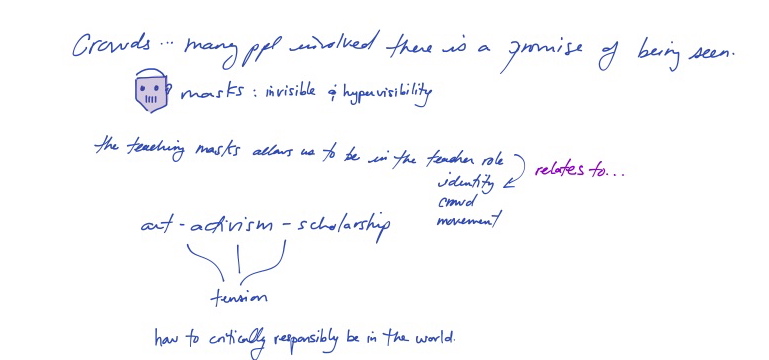 Crowds... many ppl involved there is a promise of being seen.
masks : invisible & hypervisibility
the teaching masks allows us to be in the teacher role
relates to...
identity
crowd
movement
art - activism - scholarship
tension
how to critically responsibly be in the world.